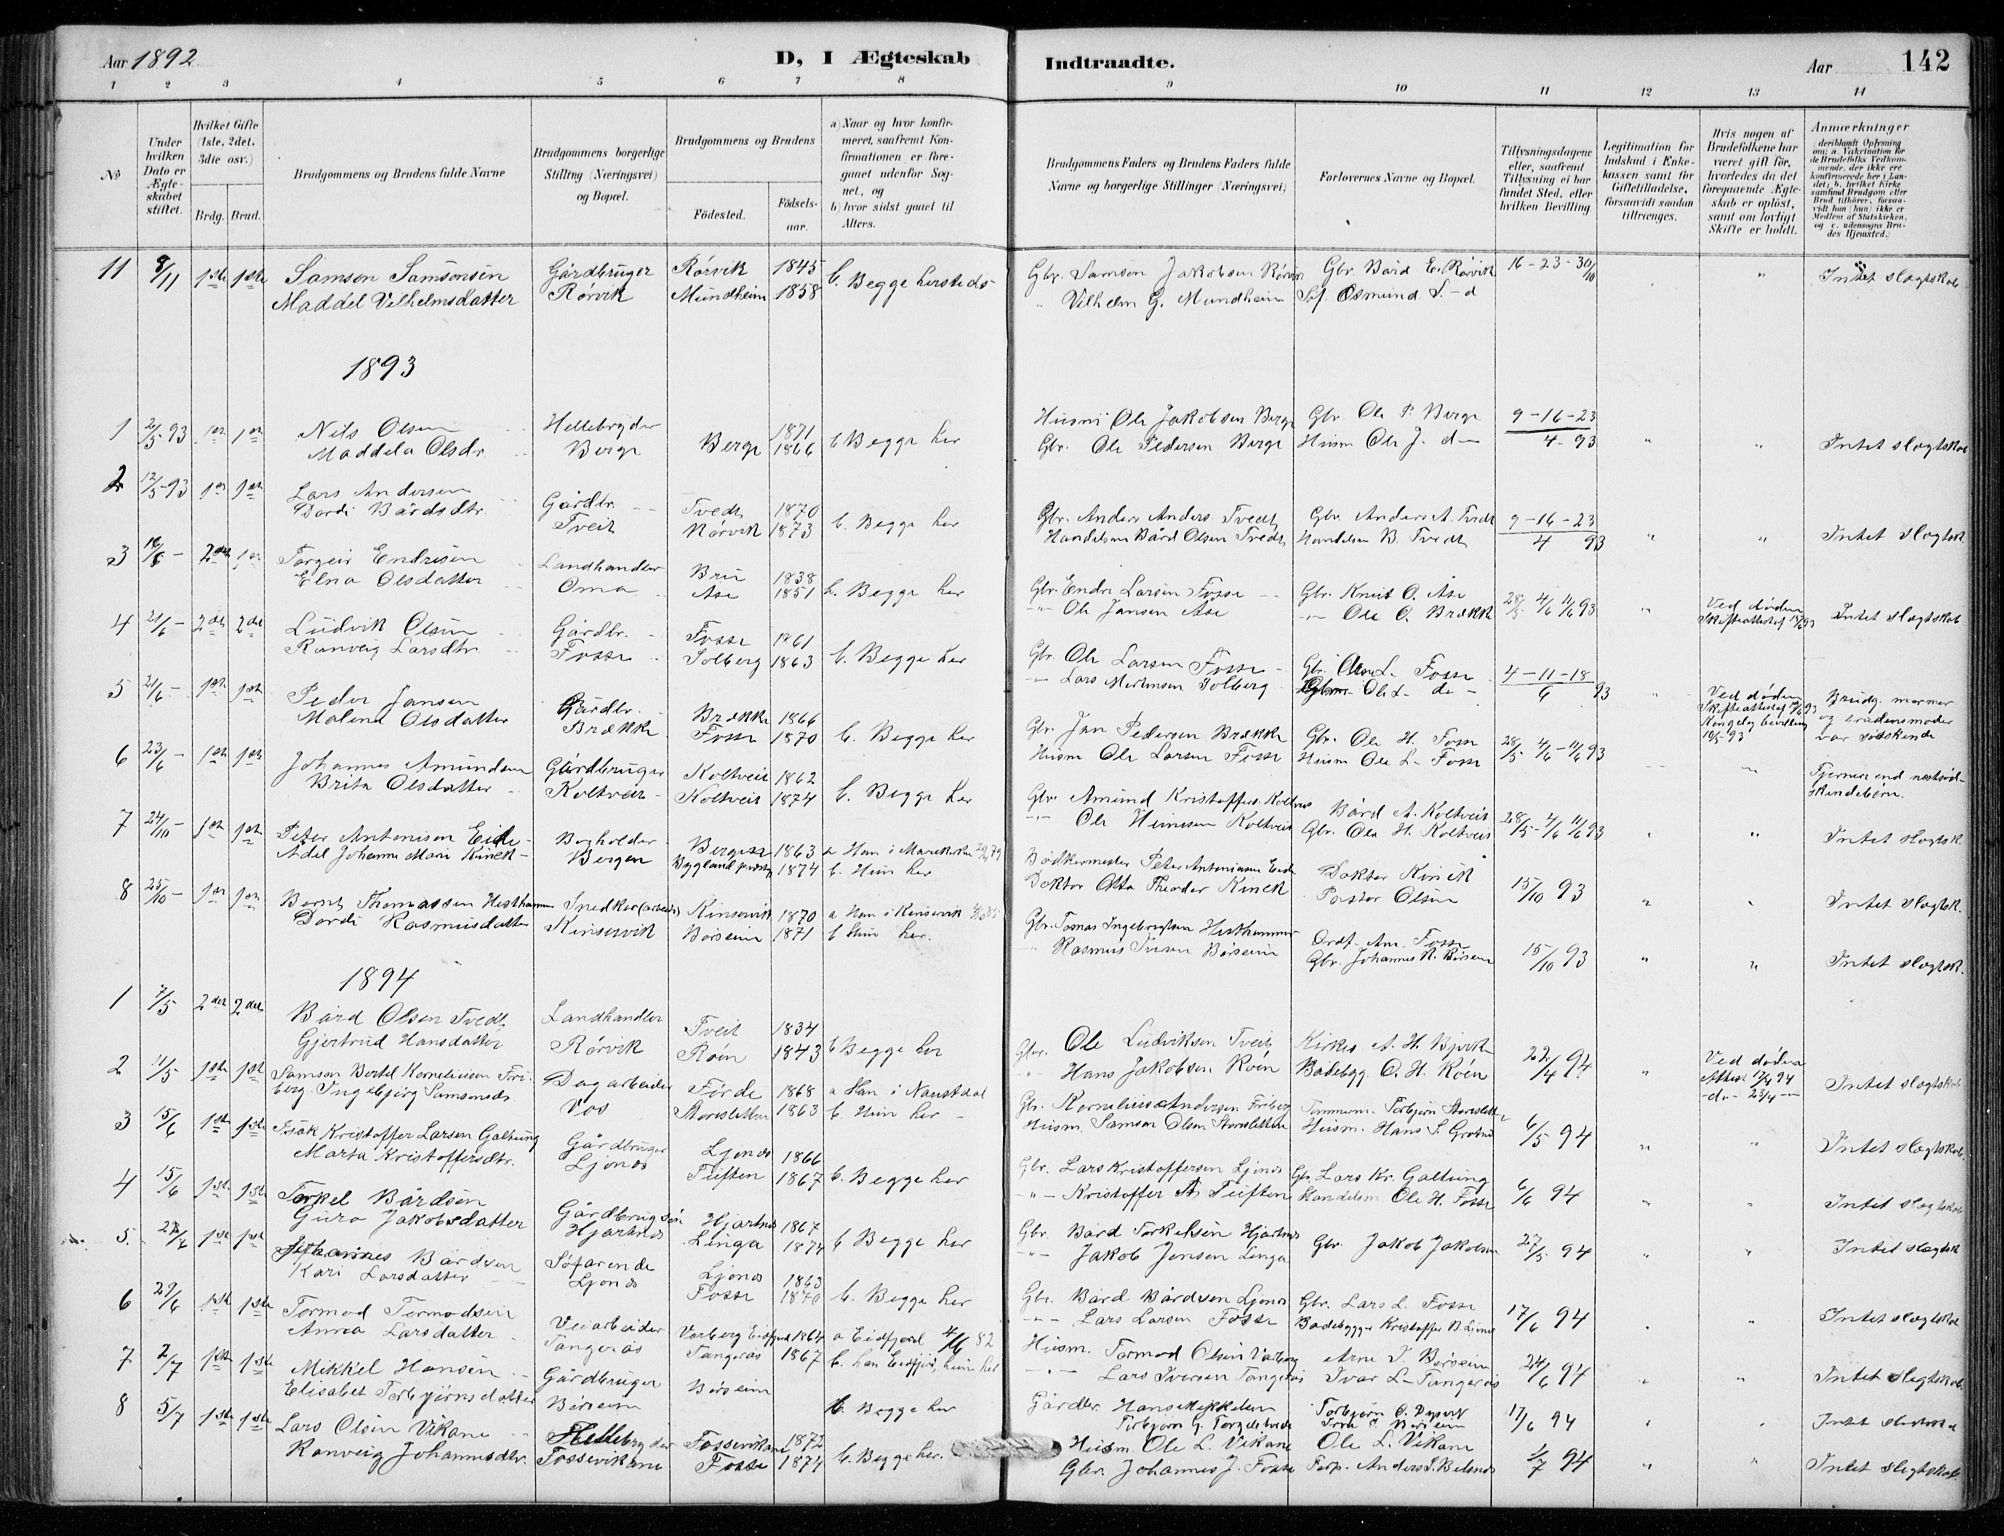 Aar 1892
D, I Ægteskab
Indtraadte.
Aar
142
1 2 3 4 5 6 7 8 9 10 11 12 13 14
№
Under hvilken Dato er Ægteskabet stiftet.
Hvilket Gifte (1ste, 2det, 3die osv.)
Brdg. Brud.
Brudgommens og Brudens fulde Navne
Brudgommens borgerlige Stilling (Næringsvei) og Bopæl.
Brudgommens og Brudens
Fødested.
Fødselsaar.
a) Naar og hvor konfirmeret, saafremt Konfirmationen er foregaaet udenfor Sognet, og
b) hvor sidst gaaet til Alters.
Brudgommens Faders og Brudens Faders fulde Navne og borgerlige Stillinger (Næringsvei)
Forlovernes Navne og Bopæl.
Tillysningsdagene eller, saafremt Tillysning ei har fundet Sted, efter hvilken Bevilling
Legitimation for Indskud i Enkekassen samt for Giftetilladelse, forsaavidt saadan tiltrænges.
Hvis nogen af Brudefolkene har været gift før, hvorledes da det foregaaende Ægteskab er opløst, samt om lovligt Skifte er holdt.
Anmerkninger (deriblandt Oplysning om: a. Vaccination for de Brudefolks Vedkommende, der ikke ere konfirmerede her i Landet; b. hvilket Kirkesamfund Brudgom eller Brud tilhører, forsavidt han (hun) ikke er Medlem af Statskirken, og c. udensogns Brudes Hjemsted.)
11 8/11 1ste 1ste Samson Samsonsen Gårdbruger Rørvik 1845 b. Begge hersteds Gbr. Samson Jakobsen Rørvik Gbr. Bård E. Rørvik 16-23-30/10 " Intet slægtskab
Maddel Vilhelmsdatter Rørvik Mundheim 1858 " Vilhelm G. Mundheim Sgf. Osmund S. - d
1893
1 2/5-93 1ste 1ste Nils Olsen Hellebryder Berge 1871 b Begge her Husm Ole Jakobsen Berge Gbr. Ole P. Berge 9-16-23
Maddela Olsdr Berge 1866 Gbr. Ole Pedersen Berge Husm Ole J. d- 4-93 " " Intet slægtskab
2 12/5-93 1ste 1ste Lars Andersen Gårdbr. Tvedt 1870 b. Begge her Gbr. Anders Anders. Tvedt Gbr. Anders A. Tvedt 9-16-23
Dordi Bårdsdtr. Tveit Rørvik 1873 Handelsm Bård Olsen Tvedt Handelsm B. Tvedt 4 93 " " Intet slægtsk.
3 2det 1ste Torgeir Endresen Landhandler Bru 1838 b. Begge her Gbr Endre Larsen Fosse Gbr. Knut O. Åse 28/5 4/6 11/6 93
Elna Olsdatter Oma Åse 1851 "- Ole Jansen Åse "- Ole O. Brække " Ved døden Skifteattest Intet slægtskab
4 21/6- 2det 2det Ludvik Olsen Gårdbr. Fosse 1861 b. Begge her Gbr. Ole Larsen Fosse Gbr. L. Fosse 4-11-18
Ranveig Larsdtr. Fosse Solberg 1863 "- Lars Mortensen Solberg Ole L- do- 6 93 Ved døden Skifteattest
5 21/6- 1ste 1ste Peder Jansen Gårdbr. Brække 1866 b. Begge her Gbr. Jan Pedersen Brække Gbr. Ole H. Fosse 28/5 4/6-11/6 93 Kongelig bevilling Brudg. mormor og brudens moder var sødskende
Malena Olsdatter Brække Fosse 1870 Husm Ole Larsen Fosse Husm Ole L. Fosse
6 23/6- 1ste 1ste Johannes Amundsen Gårdbruger Koltveit 1862 b. Begge her Gbr. Amund Kristoffers. Koltveit Bård A. Koltveit 28/5-4/6 11/6 93 Fjernere end næstsødskendebørn.
Brita Olsdatter Koltveit Koltveit 1874 "- Ole Heinesen Koltveit Gbr. Ola H. Koltveit Intet slægtsk.
7 24/10- 1ste 1ste Peter Antonisen Eide Bogholder Bergen 1863 a Han i Mariekirken Bødkermester Peter Antoniusen Eide Doktor Kinck 15/10 93
Adel Johanne Mari Kinck Bergen Bygland 1874 b. Hun her Doktor Otto Theodor Kinck Pastor Olsen Intet slægtsk.
8 25/10- 1ste 1ste Bernt Thomassen Hesthammer Snedker Kinservik 1870 a Han i Kinservik Gbr. Tomas Ingebrigtsen Hesthammer Ordf. Am. Fosse 15/10 93
Dordi Rasmusdatter Kinservik Børseim 1871 b Hun her. "- Rasmus Iversen Børseim Gbr. Johannes R. Børseim Intet slægtsk.
1894
1 7/5 2det 2det Bård Olsen Tvedt Landhandler Tveit 1834 b Begge her Gbr. Ole Ludviksen Tveit Kirkes. A. H. Bjørke 22/4 94 Ved døden Attest 17/4 94
Gjertrud Hansdatter Rørvik Røen 1843 "- Hans Jakobsen Røen Badebyg. O. H. Røen -do- 23/4- Intet slægtskab
2 11/5 1ste 1ste Samson Bertel Korneliusen Friberg Dagarbeider Førde 1868 a Han i Naustdal Gbr. Kornelius Andersen Friberg Tømmerm. Torbjørn Storesletten 6/5 94
Ingebjørg Samsonsdr. Vos Storesletten 1863 b. Hun her Husm. Samson Olsen Storesletten Husm. Hans S. Intet slægtskab.
3 15/6 1ste 1ste Isåk Kristoffer Larsen Galtung Gårdbruger Ljones 1866 b. Begge her Gbr. Lars Kristoffersen Ljones Gbr. Lars Kr. Galtung 6/6 94
Marta Kristoffersdtr. Ljones Tuften 1867 "- Kristoffer A. Tuften Handelsm. Ole H. Fosse Intet slægtskab
4 15/6 1ste 1ste Torkel Bårdsen Gårdbrugsøn Hjartnes 1867 b Begge her Gbr. Bård Torkelsen Hjartnes Gbr. Jakob Jakobsen 27/5 94
Guro Jakobsdatter Hjartnes Linga 1874 "- Jakob Jensen Linga Intet slægtsk
5. 1ste 1ste Johannes Bårdsen Søfarende Ljones 1863 b. Begge her Gbr. Bård Bårdsen Ljones Gbr. Lars L. Fosse 17/6 94
Kari Larsdatter Ljones Fosse 1870 "- Lars Larsen Fosse Badebygger Kristoffer B. Intet slægtskab
6 29/6 1ste 1ste Tormod Tormodsen Veiarbeider Varberg Eidfjord 1864 a Eidfjord 82 Husm. Tormod Olsen Varberg Arne I. Børseim 24/6 94
Anna Larsdatter Tangerås Tangerås 1867 b. han Eidfjord, hun her "- Lars Iversen Tangerås Ivar L. Tangerås Intet slægtskab.
7 2/7 1ste 1ste Mikkel Hansen Gårdbruger Børseim b. Begge her Gårdbr. Hans Mikkelsen 17/6 94
Elisabet Torbjørnsdatter Børseim Torbjørn G. Børseim Intet
8 5/7 1ste 1ste Lars Olsen Vikane Hellebryder Fossevikane 1872 b. Begge her. Husm. Ole L. Vikane Ole L. Vikane 94
Ranveig Johannesdtr. Fossevikane Fosse 1874 Gbr. Johannes J. Fosse Anders Intet slægtskab